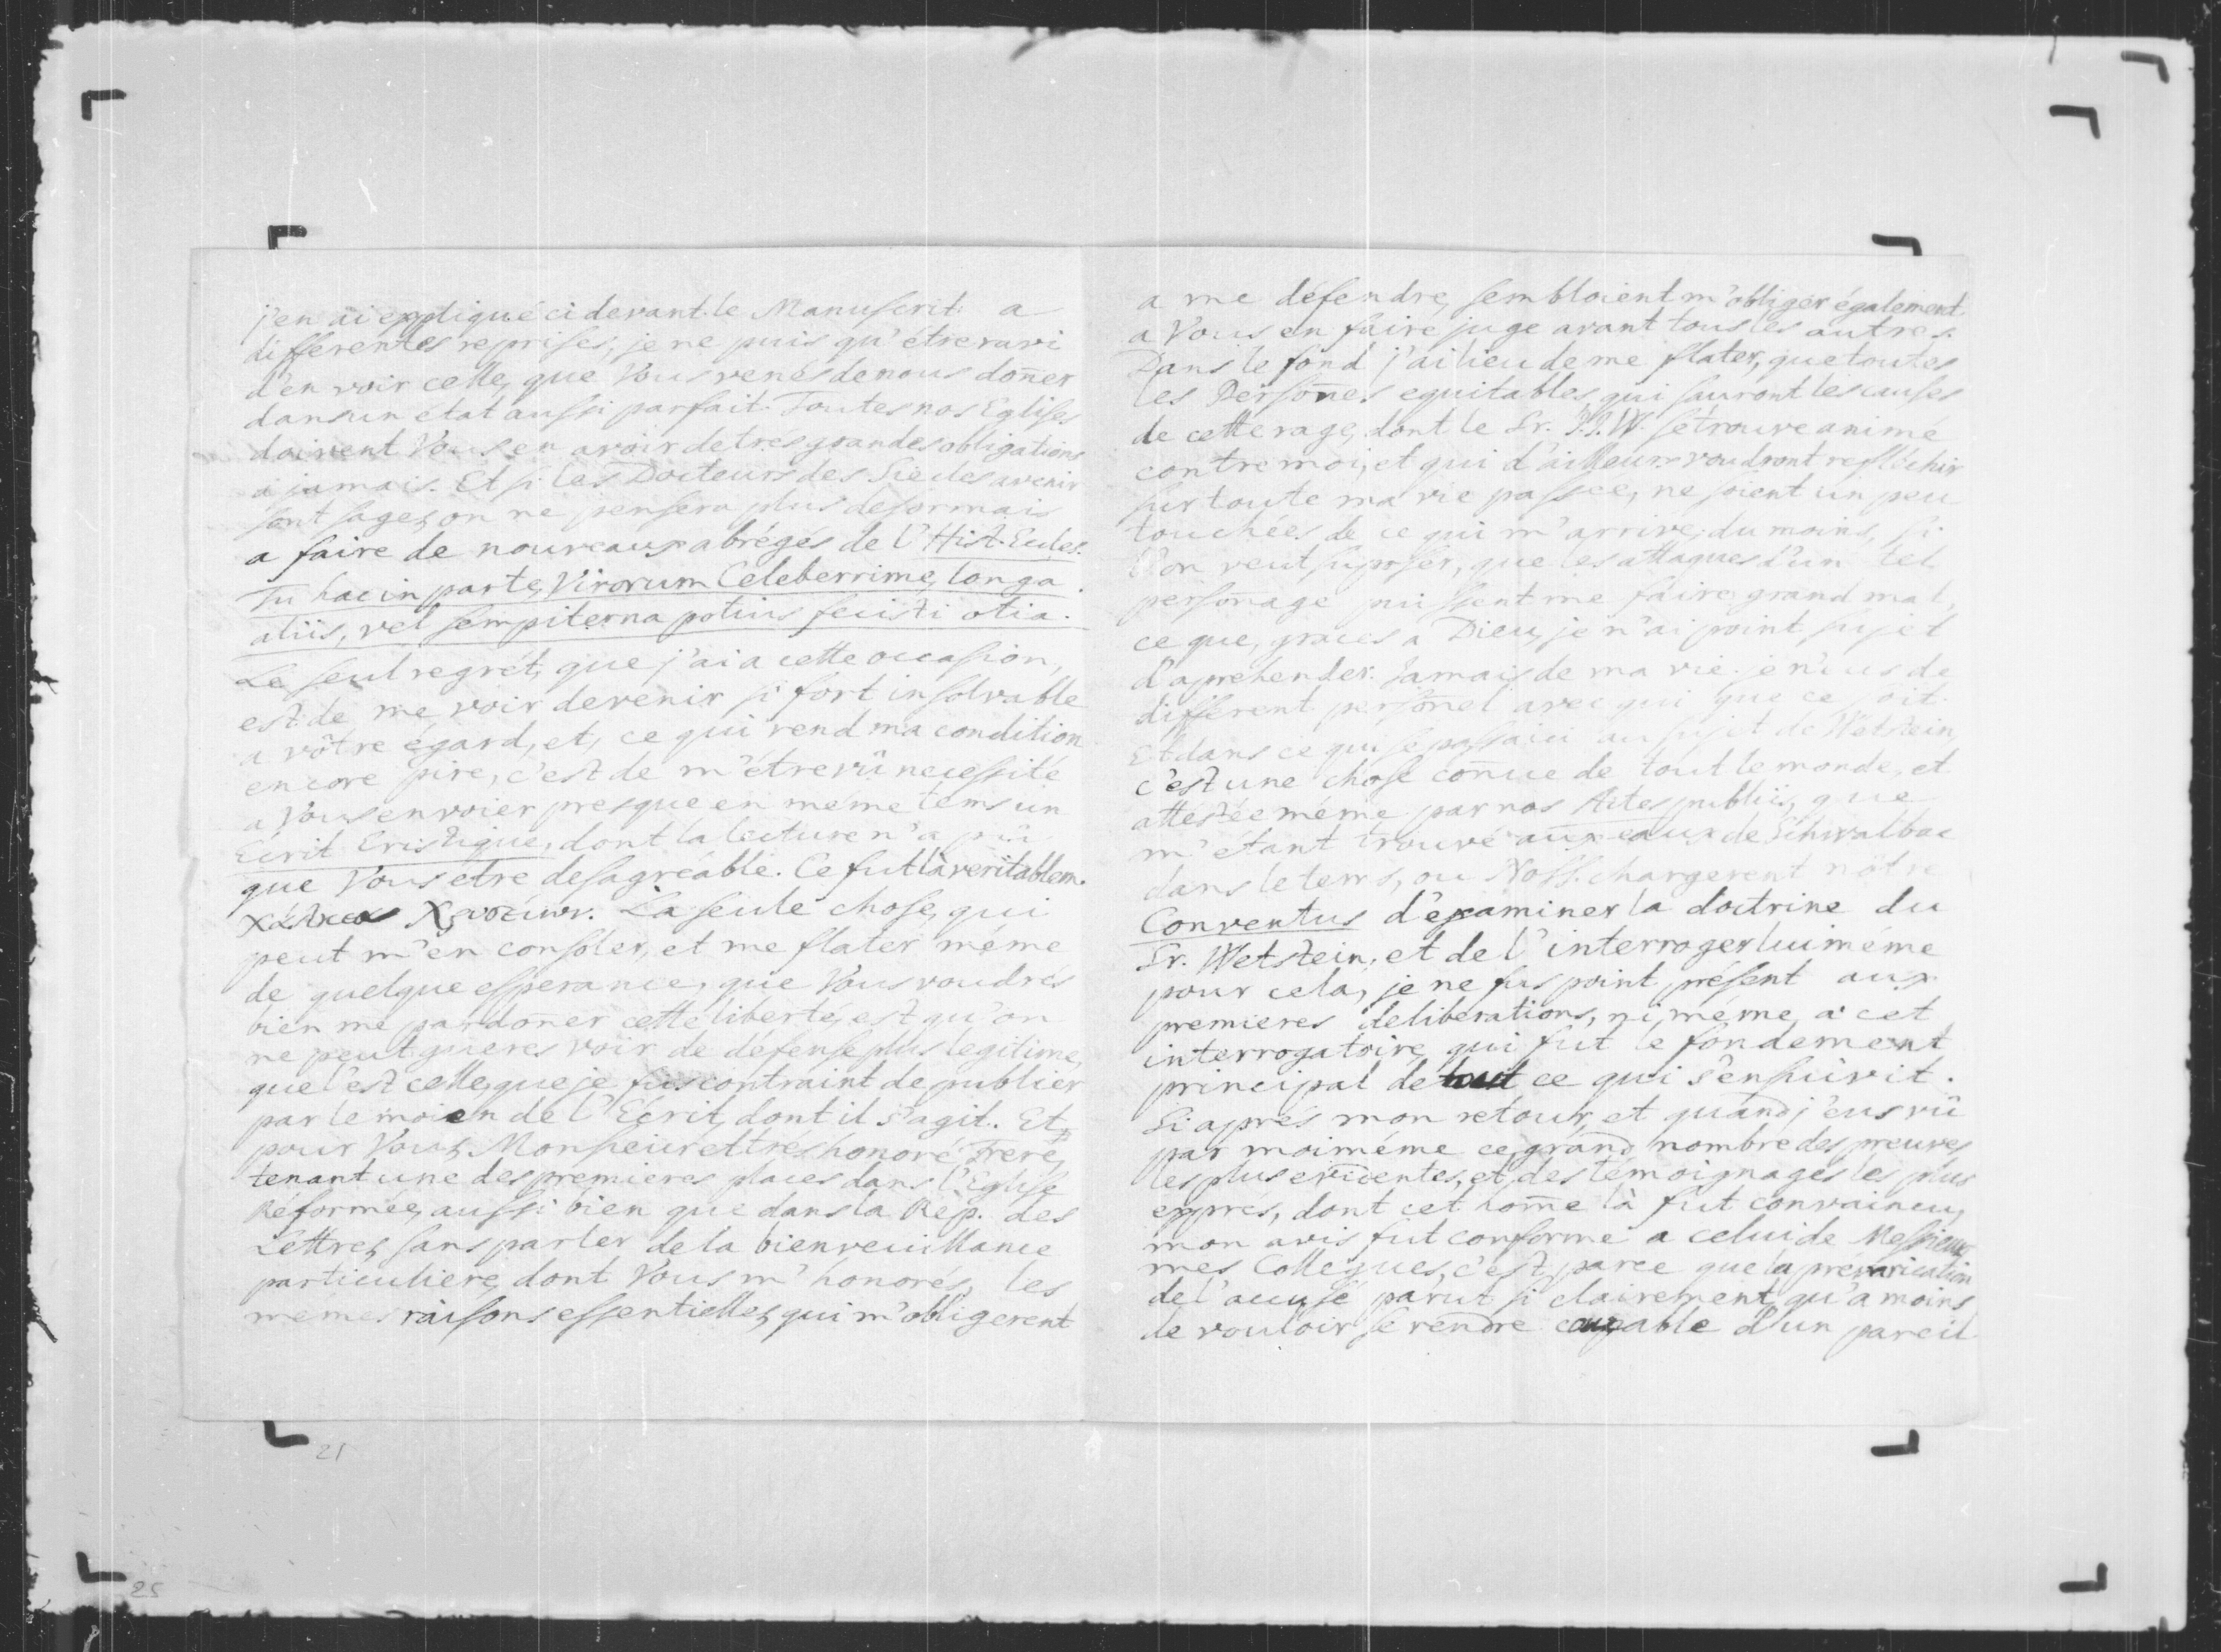 j'en ai expliqué ci devant le Manuscrit a
differentes reprises, je ne puis qu'étre ravi
d'en voir celle, que Vous venés de nous doñer
dans un état aussi parfait. Toutes nos Eglises
doivent Vous en avoir de trés grandes obligations
a jamais. Et si les Docteurs des Siecles avenir
sont sages, on ne pensera plus desormais
a faire de nouveaux abrégés de l'Hist. Eccles.
Tu hac in parte, Virorum Celeberrime, longa
aliis, vel sempiterna potius fecisti otia.
Le seul regrét, que j'ai a cette occasion,
est de me voir devenir si fort insolvable
a vôtre égard, et, ce qui rend ma condition
encore pire, c'est de m'étre vû necessité
a Vous envoier presque en méme tems un
Ecrit Eristique, dont la lecture n'a pû
que Vous etre desagréable. Ce fut là veritablem.
La seule chose, qui
peut m'en consoler, et me flater méme
de quelque esperance, que Vous voudrés
bien me pardoñer cette liberté, est qu'on
ne peut gueres voir de défense plus legitime,
que l'est celle, que je fus contraint de publier
par le moien de l'Ecrit, dont il s'agit. Et,
pour Vous, Monsieur et trés honoré Frere,
tenant une des premieres places dans l'Eglise
Réformée, aussi bien que dans la Rép. des
Lettres, sans parler de la bienveuillance
particuliere, dont Vous m'honorés, les
mémes raisons essentielles, qui m'obligerent
a me défendre, sembloient m'obliger également
a Vous en faire juge avant tous les autres.
Dans le fond j'ai lieu de me flater, que toutes
les Persoñes equitables, qui sauront les causes
de cette rage, dont le Sr. J.J.W. se trouve animé
contre moi, et qui d'ailleurs voudront reflêchir
sur toute ma vie passée, ne soient un peu
touchées de ce qui m'arrive; du moins, si
l'on veut suposer, que les attaques d'un tel
persoñage puissent me faire grand mal,
ce que, graces a Dieu, je n'ai point sujet
d'aprehender. Jamais de ma vie je n'eus de
different persoñel avec qui que ce soit.
Et dans ce qui se passa ici au sujet de Wetstein,
c'est une chose coñue de tout le monde, et
attestée méme par nos Actes publics, que
m'étant trouvé aux eaux de Schwalbac
dans le tems, ou NossS. chargerent nôtre
Conventus d'examiner la doctrine du
Sr. Wetstein, et de l'interroger lui méme
pour cela, je ne fus point présent aux
premieres deliberations, ni méme a cet
interrogatoire, qui fut le fondement
principal de tout ce qui s'ensuivit.
Si aprés mon retour, et quand j'eus vû
par moiméme ce grand nombre des preuves
les plus evidentes, et des témoignages les plus
exprés, dont cet home là fut convaincu,
mon avis fut conforme a celui de Messieurs
mes Collegues, c'est parce que la prévarication
de l'accusé parut si clairement, qu'a moins
de vouloir se rendre coupable d'un pareil
21
25